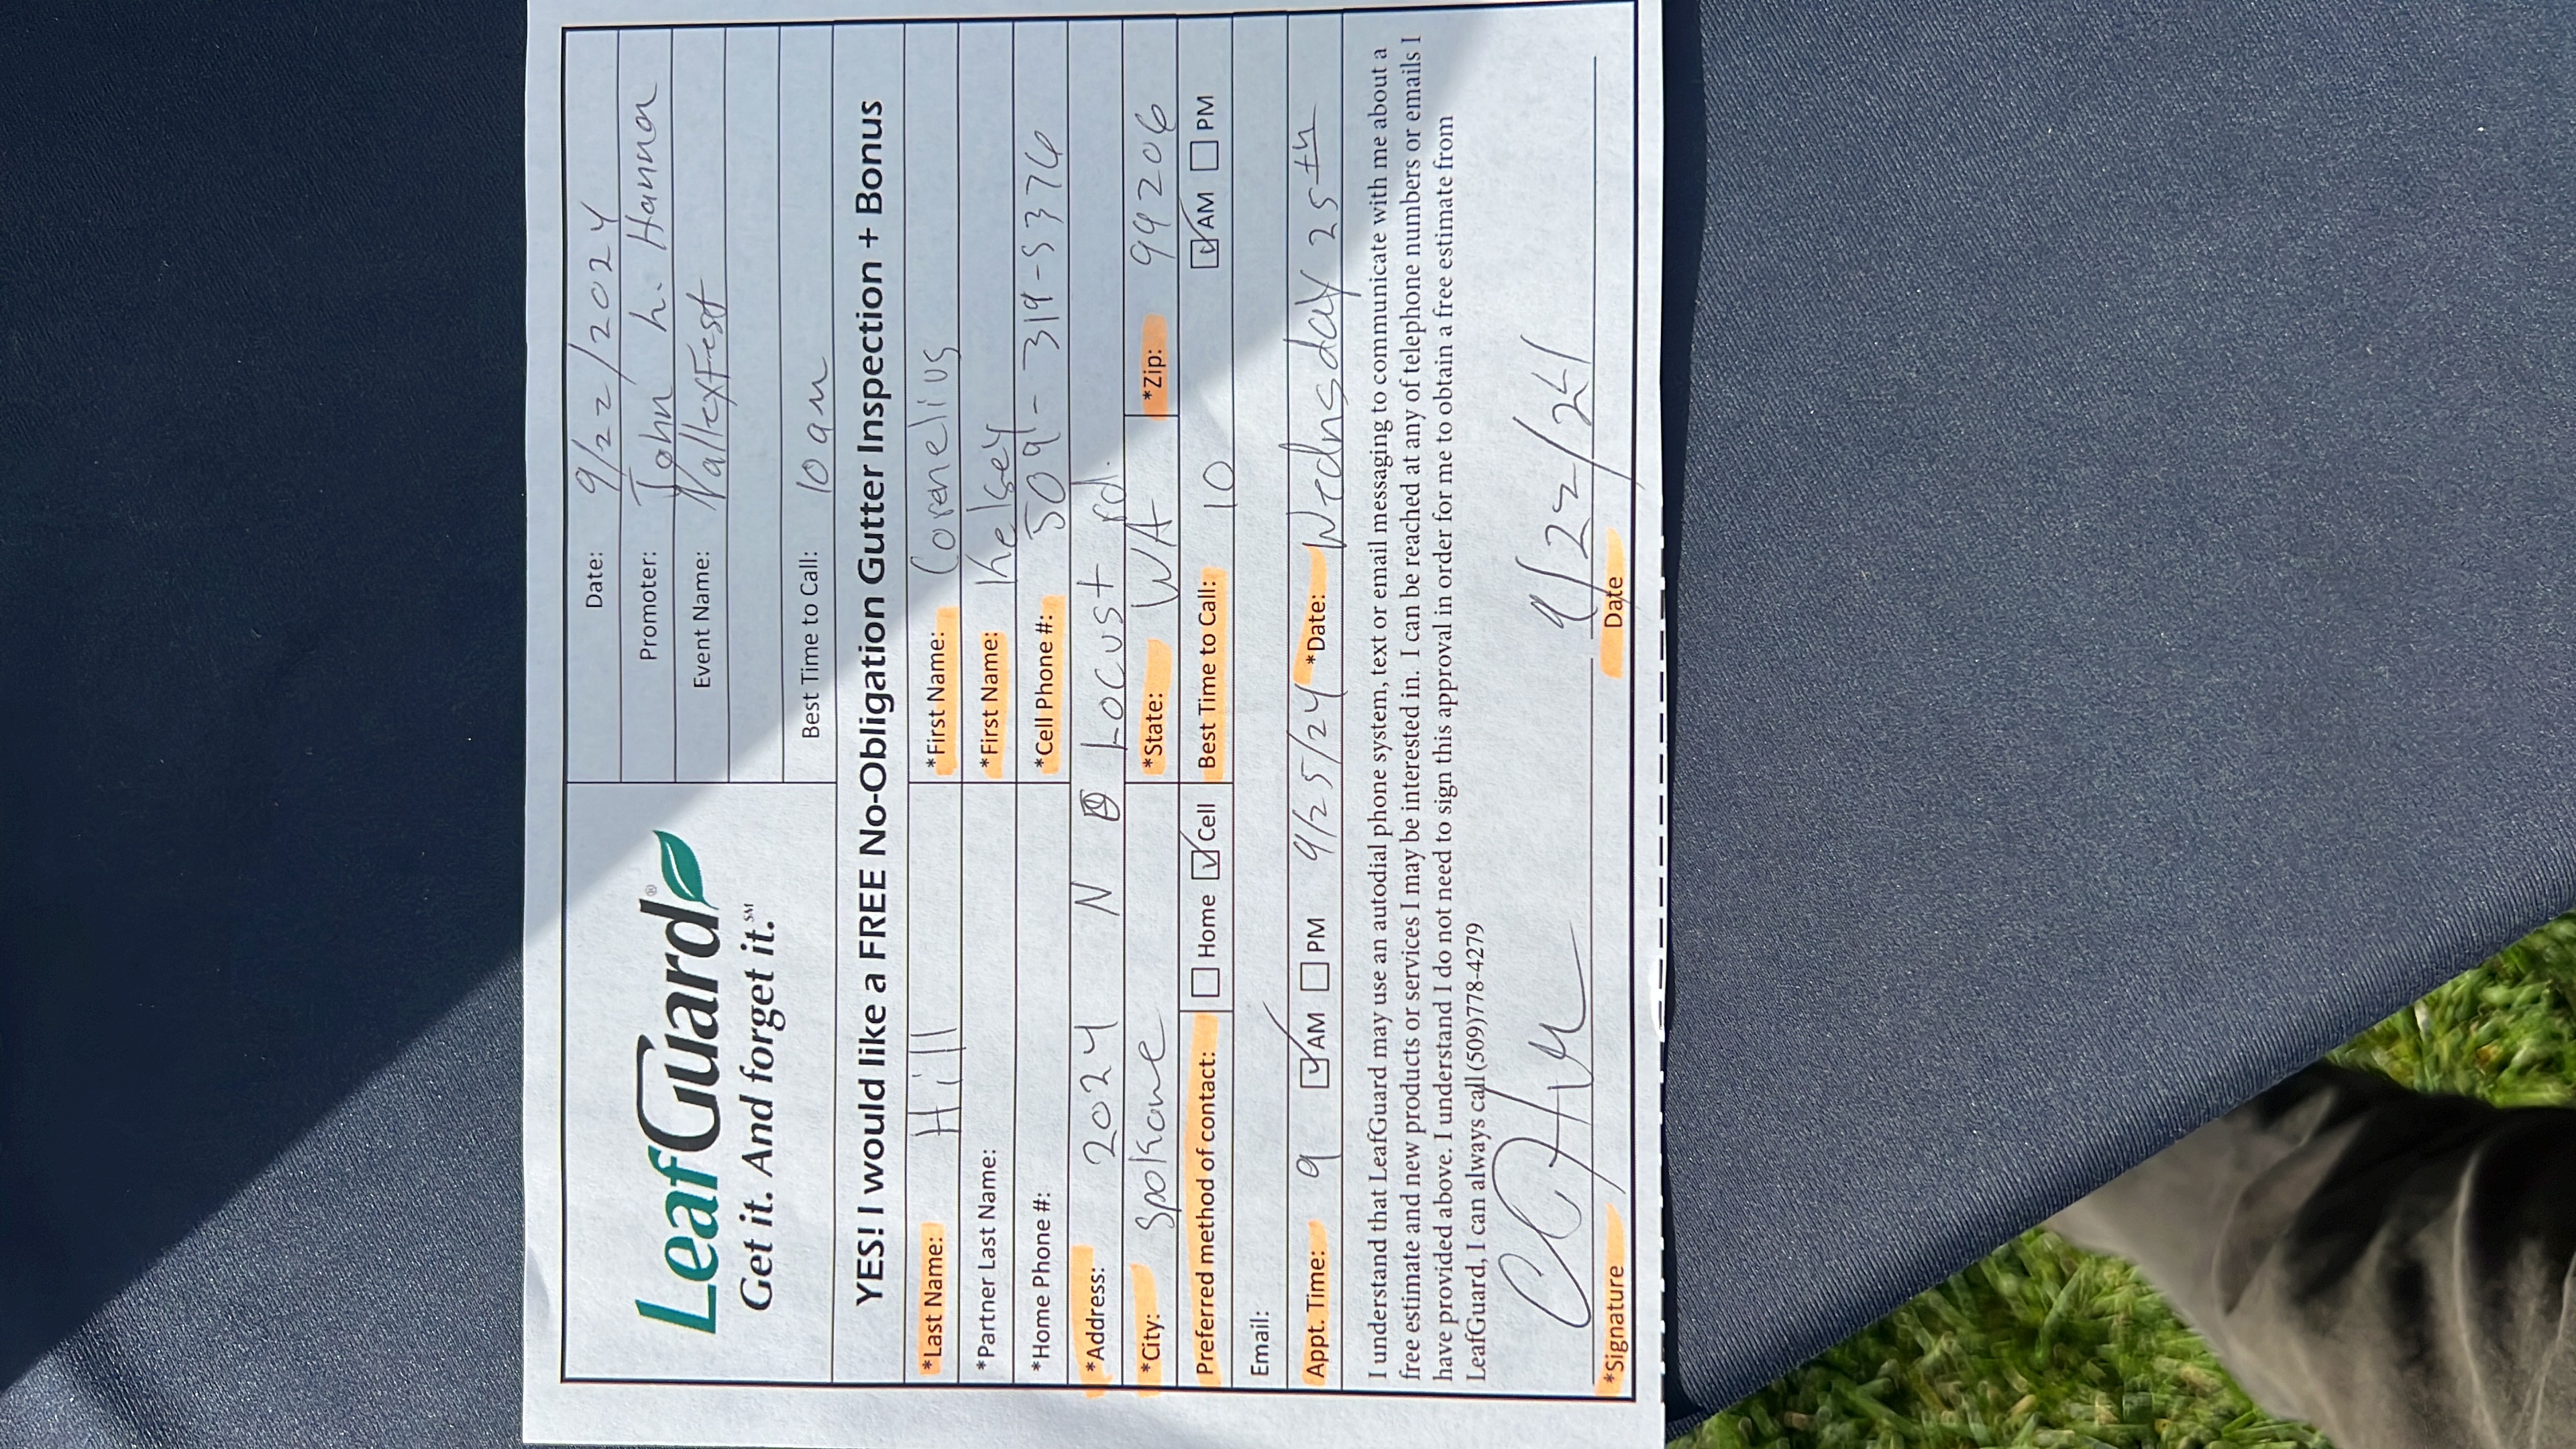 Date: 9/22/2024
Promoter: John h. Hanna
LeafGuard®
Get it. And forget it.℠
Event Name: ValleyFest
Best Time to Call: 10 am
YES! I would like a FREE No-Obligation Gutter Inspection + Bonus
*Last Name: Hill *First Name: Corenelius
*Partner Last Name: *First Name: Kelsey
*Home Phone #: *Cell Phone #: 509-319-5376
*Address: 2024 N Locust rd.
*City: Spokane *State: WA *Zip: 99206
Preferred method of contact: Home Cell Best Time to Call: 10 AM PM
Email:
Appt. Time: 9 AM PM 9/25/24 *Date: Wednsday 25th
I understand that LeafGuard may use an autodial phone system, text or email messaging to communicate with me about a
free estimate and new products or services I may be interested in. I can be reached at any of telephone numbers or emails I
have provided above. I understand I do not need to sign this approval in order for me to obtain a free estimate from
LeafGuard, I can always call (509)778-4279
9/22/24
*Signature Date